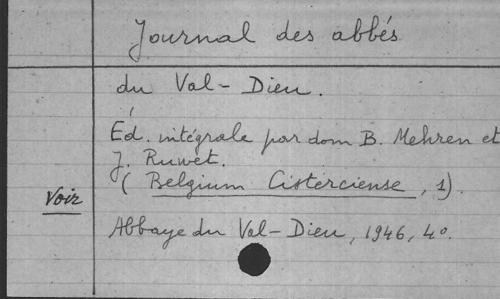 Journal des abbés
du Val-Dieu.
Éd. intégrale par dom B. Mehren et
J. Ruwet.
(Belgium Cisterciense, 1).
Voir
Abbaye du Val-Dieu, 1946, 4°.